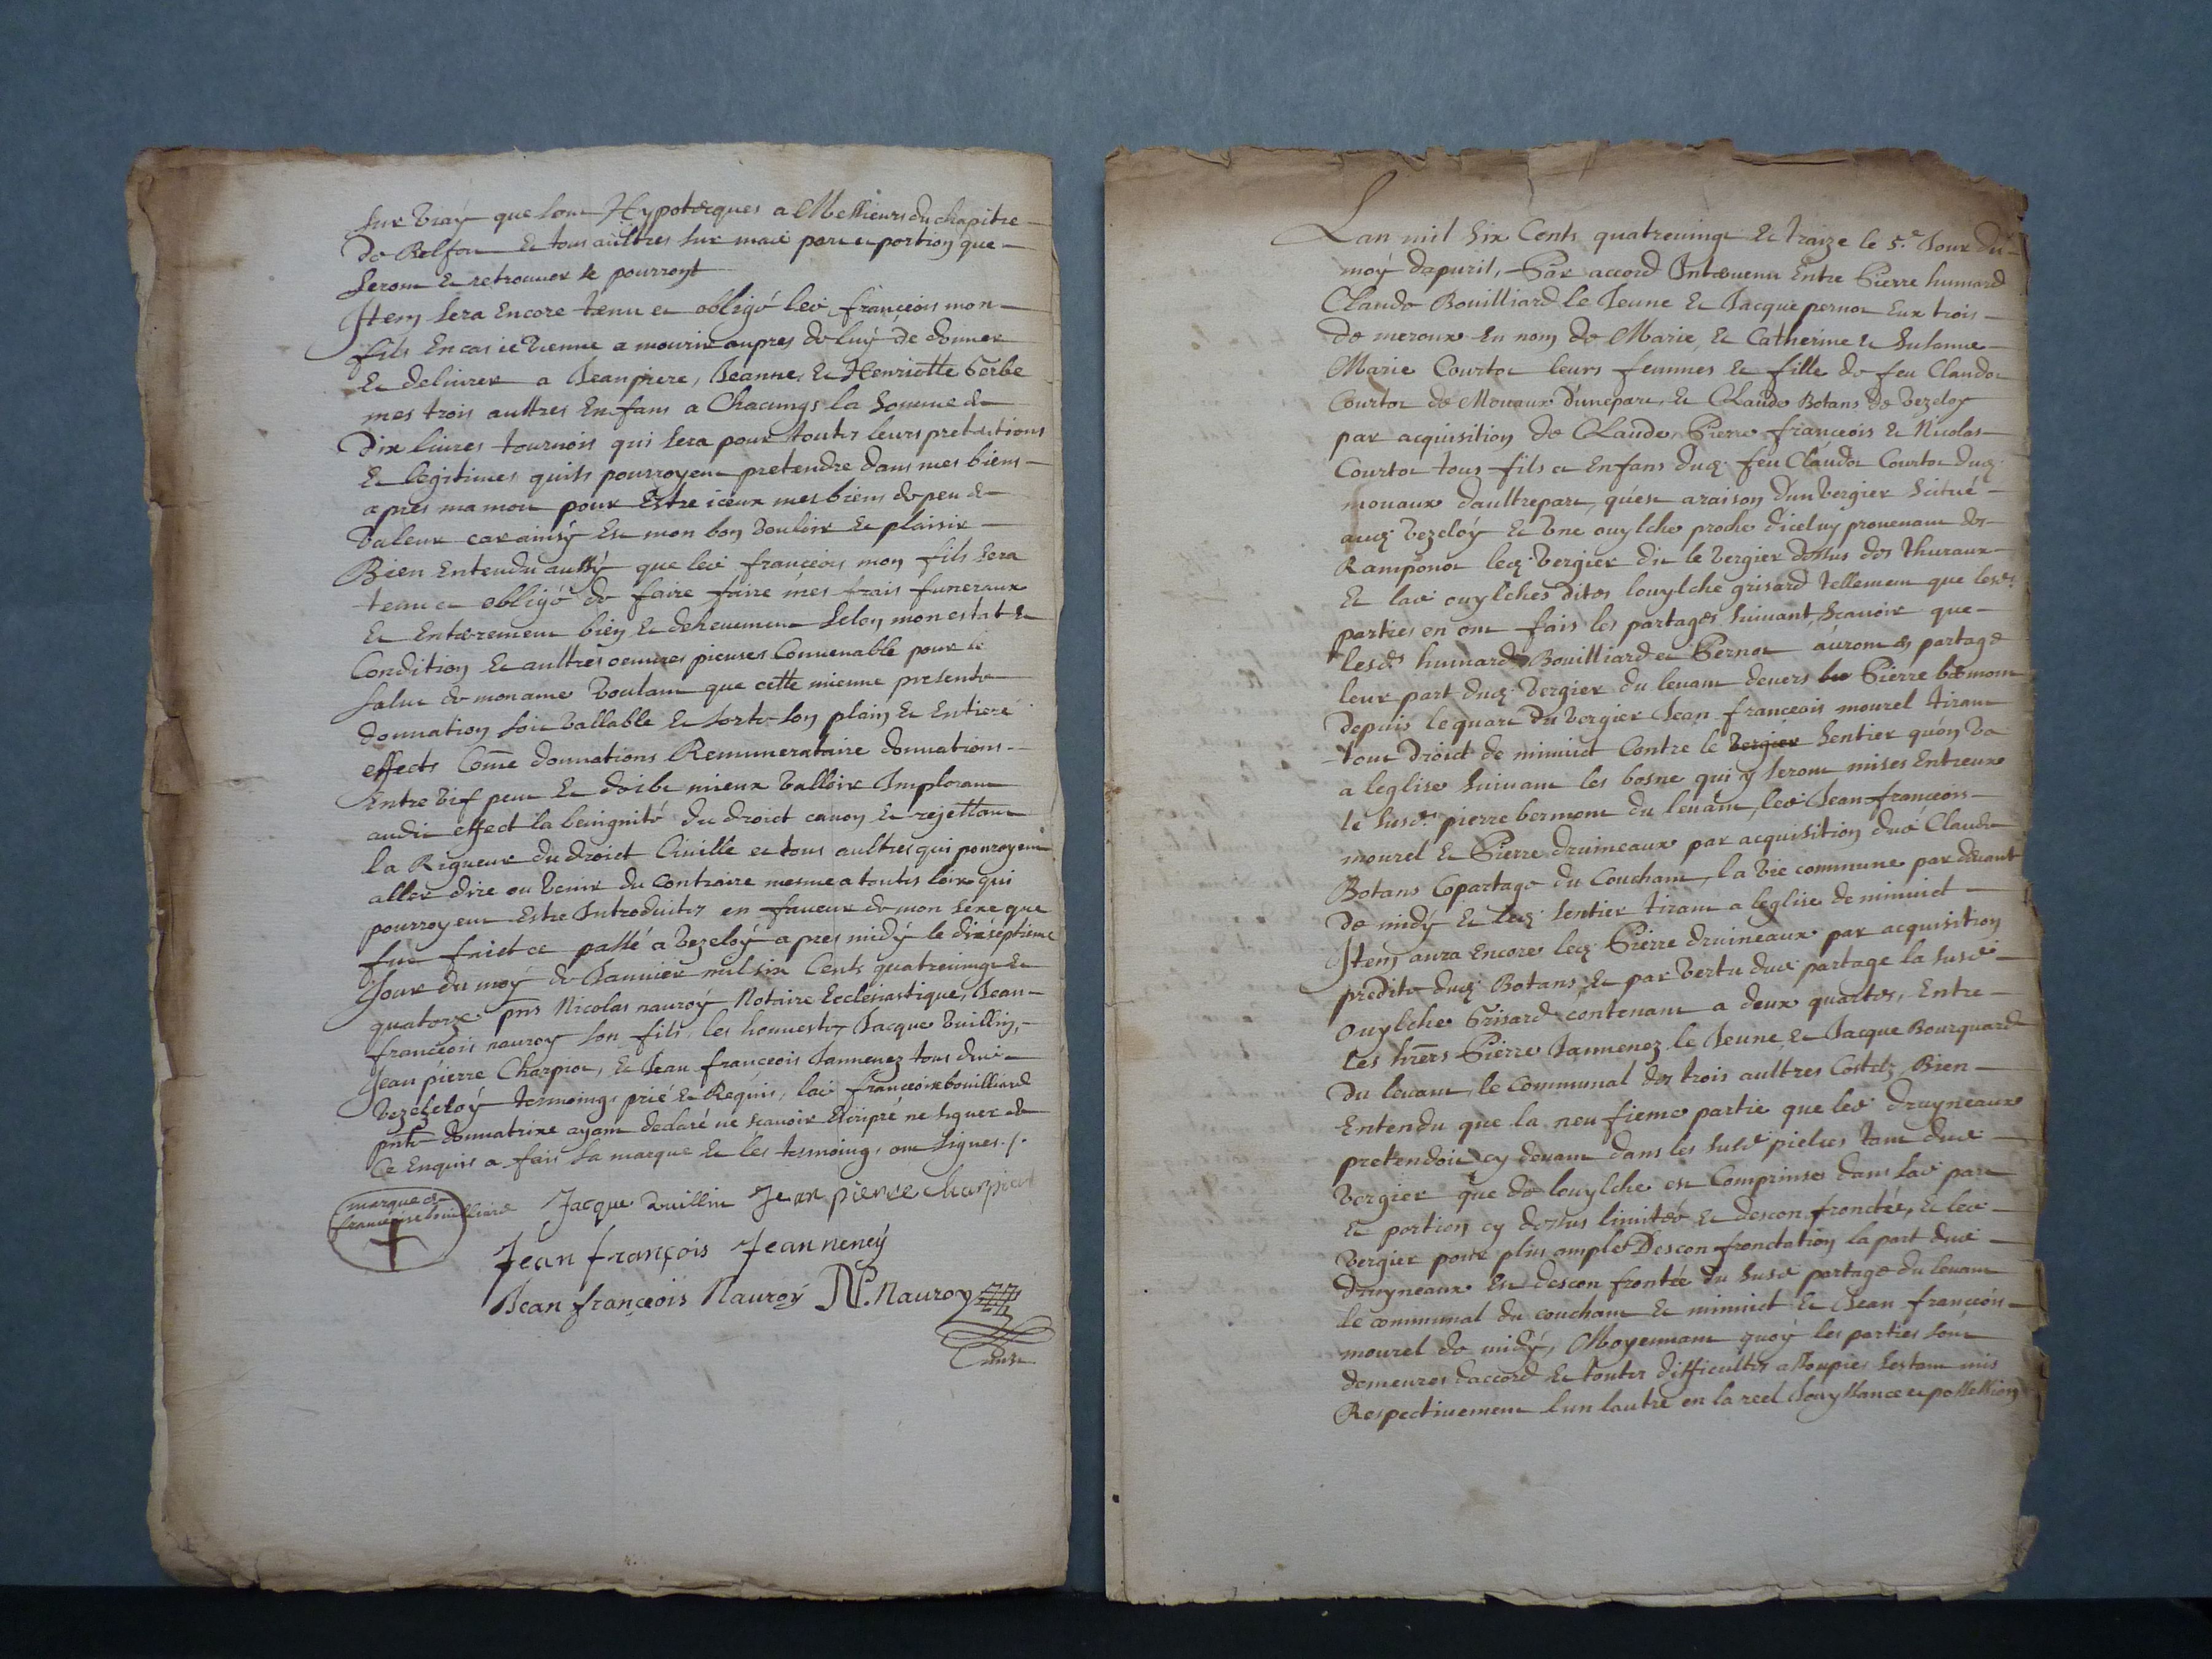 sur vray que sont Hypotecques a Messieurs du chapitre
de Belfort et tous aultres sur madite part et portion que
seront et retrouver se pourront
Item sera Encore tenu et obligé ledit franceois mon
fils En cas ie vienne a mourir aupres de luy de donner
Et delivrer a Jeanpiere, Jeanne, Et Henriotte Gerbe
mes trois aultres Enfans a Chacungs la somme de
dix livres tournois qui sera pour toutes leurs pretentions
Et legitimes quils pourroyent pretendre dans mes biens
apres ma mort pour Estre iceux mes biens de peu de
valeur car ainsy Est mon bon vouloir Et plaisir
Bien Entendu aussy que ledit franceois mon fils sera
tenu et obligé de faire faire mes frais funeraux
Et Enterement bien Et deheuement selon mon estat Et
Condition Et aultres oeuvres pieuses Convenable pour le
salut de mon ame voulant que cette mienne presente
donnation soit vallable Et sorte son plain Et Entiere
effects Come donnations Remunerataire donnations
Entre vif peut Et doibt mieux valloir Implorant
audit effect la benignité du droict canon Et rejettant
la Rigueur du droict Civille et tous aultres qui pourroyent
aller dire ou venir du Contraire mesme a toutes loix qui
pourroyent Estre Introduites en faveur de mon sexe que
fut faict et passé a vezeloy apres midy le dixseptieme
Jour du moy de Janvier mil six Cents quatrevingt Et
quatorze pns Nicolas nauroy Notaire Ecclesiastique, Jean
franceois nauroy son fils, les honnestes Jacque vuillin,
Jean pierre Charpiot, Et Jean franceois Jannenez tous dudit
vezeloy tesmoings prié Et Requis, ladite franceoise bouilliard
pnte donnatrixe ayant declaré ne scavoir Escripre ne signer de
Ce Enquis a fais sa marque Et les tesmoings ont signes ./.
marque de
franceoise bouilliard Jacque vuillin Jean pierre charpiot
Jean françois Jeanneney
Jean franceois Nauroy N. Nauroy
Lan mil six Cents quatrevingt Et traize le 5.e Jour du
moy dapuril, Par accord Intervenu Entre Pierre humard
Claude Bouilliard le Jeune Et Jacque pernot Eux trois
de meroux En nom de Marie, Et Catherine Et Susanne
Marie Courtot leurs femmes Et fille de feu Claudot
Courtot de Movaux d'unepart, Et Claude Botans de vezeloy
par acquisition de Claude, Pierre franceois Et Nicolas
Courtot tous fils et Enfans dud. feu Claudot Courtot dud.
mouaux daultrepart, quest araison d'un vergier scitué
aud. vezeloy Et une ouylche proche d'iceluy provenant des
Ramponot led. vergier dit le vergier dessus des thuraux
Et ladite ouylches dites louylche grisard tellement que lesd.
parties en ont fais les partages suivant, scavoir que
lesd. humard Bouilliard et Pernot auront de partage
leur part dud. vergier du levant devers Pierre bermont
depuis lequart du vergier Jean franceois mourel tirant
tout droict de minuict Contre le vergier sentier quon va
a leglise suivant les bosne qui y seront mises Entreux
le susd. pierre bermont du levant, ledit Jean franceois
mourel Et Pierre druineaux par acquisition dudit Claude
Botans Copartage du Couchant, la vie commune par devant
de midy Et led. sentier tirant a leglise de minuict
Item aura Encore led. Pierre druineaux par acquisition
predite dud. Botans, Et par vertu dudit partage la susdite
Ouylche Grisard contenant a deux quartes, Entre
les hrers Pierre Jannenez le Jeune, Et Jacque Bourquard
du levant, le Communal des trois aultres Costelz Bien
Entendu que la neufieme partie que ledit druyneaux
pretendoit cy devant dans les susdit pieces tant dudit
vergier que de louylche est Comprinse dans ladite part
Et portion cy dessus limitée Et desconfronctée, Et ledit
vergier pour plus ample Desconfronctation la part dudit
druyneaux Est desconfrontée du susdit partage du levant
le communal du couchant Et minuict Et Jean franceois
mourel de midy, Moyennant quoy les parties sont
demeures daccord Et toutes difficultes assoupies sestant mis
Respectivement lun lautre en la reel Jouyssance et possession